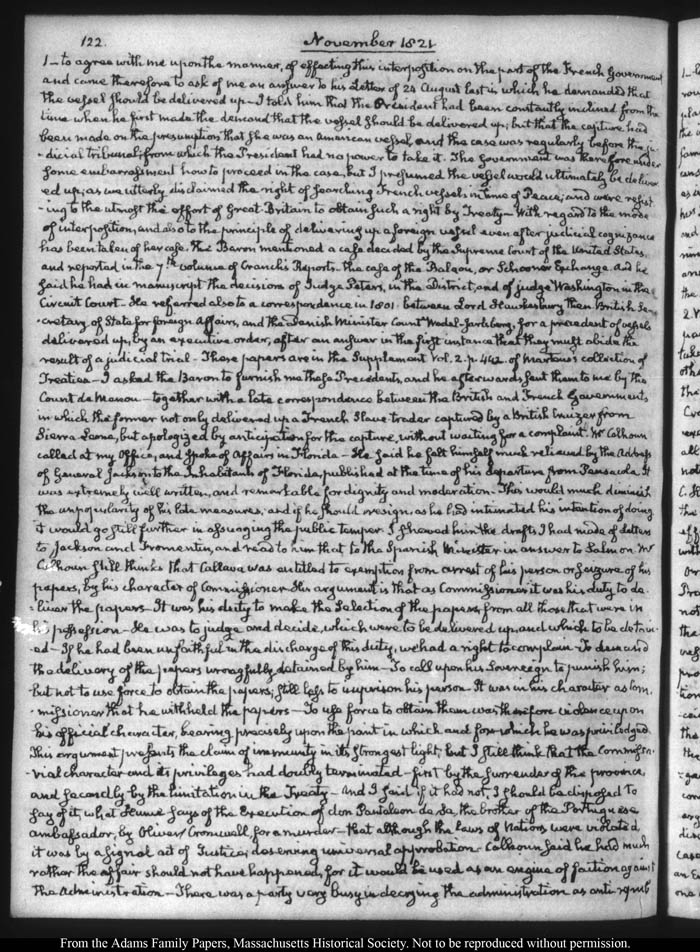 122.
November 1821
1_ to agree with me upon the manner, of effecting this interposition on the part of the French Government
and came therefore to ask of me an answer to his Letter of 24 August last in which, he demanded that
the vessel should be delivered up_ I told him that the President had been constantly inclined from the
time when he first made the demand that the vessel should be delivered up; but that the capture had
been made on the presumption that she was an American vessel, and the case was regularly before the ju-
-dicial tribunal, from which the President had no power to take it. The Government was therefore under
some embarrassment how to proceed in the case, but I presumed the vessel would ultimately be deliver
ed up; as we utterly disclaimed the right of searching French vessels in time of Peace; and were resist
-ing to the utmost the effort of Great-Britain to obtain such a right by Treaty_ With regard to the mode
of interposition, and also to the principle of delivering up a foreign vessel even after judicial cognizance
has been taken of her case. The Baron mentioned a case decided by the Supreme Court of the United States,
and reported in the 7th volume of Cranch's Reports_ the case of the Balaou, or Schooner Exchange. And he
said he had in manuscript the decisions of Judge Peters, in the District, and of judge Washington in the
Circuit Court_ He referred also to a correspondence in 1801. between Lord Hawkesbury then British Se-
-cretary of State for foreign Affairs, and the Danish Minister Count Wedel-Jarlsberg, for a precedent of vessels
delivered up, by an executive order, after an answer in the first instance that they must abide the
result of a judicial trial_ These papers are in the Supplement Vol. 2. p. of Martens's collection of
Treaties_ I asked the Baron to furnish me these Precedents, and he afterwards sent them to me by the
Count de Menou_ together with a late correspondence between the British and French Governments
in which the former not only delivered up a French Slave-trader captured by a British Cruizer from
Sierra Leone, but apologized by anticipation for the capture, without waiting for a complaint. Mr Calhoun
called at my Office, and spoke of Affairs in Florida_ He said he felt himself much relieved by the Address
of General Jackson to the Inhabitants of Florida, published at the time of his departure from Pensacola. It
was extremely well written, and remarkable for dignity and moderation_ This would much diminish
the unpopularity of his late measures; and if he should resign, as he had intimated his intention of doing
it would go still further in assuaging the public temper. I shewed him the drafts I had made of letters
to Jackson and Fromentin, and read to him that to the Spanish Minister in answer to Salmon_ Mr
Calhoun still thinks that Callava was entitled to exemption from arrest of his person or seizure of his
papers, by his character of Commissioner. His argument is that as Commissioner it was his duty to de-
-liver the papers_ It was his duty to make the selection of the papers, from all those that were in
his possession_ He was to judge and decide, which were to be delivered up, and which to be detain-
-ed_ If he had been unfaithful in the discharge of this duty, we had a right to complain_ To demand
the delivery of the papers wrongfully detained by him_ To call upon his Sovereign to punish him;
but not to use force to obtain the papers; still less to imprison his person_ It was in his character as Com-
-missioner that he withheld the papers_ To use force to obtain them was therefore violence upon
his official character, bearing precisely upon the point in which and for which he was priviledged.
This argument presents the claim of immunity in its strongest light; but I still think that the Commissa-
-rial character and its privileges had doubly terminated_ first by the surrender of the province,
and secondly by the limitation in the Treaty_ And I said if it had not, I should be disposed to
say of it, what Hume says of the Execution of don Pantaleon de Sa, the brother of the Portuguese
ambassador, by Oliver Cromwell, for a murder_ that although the laws of Nations were violated,
it was by a signal act of Justice, deserving universal approbation_ Calhoun said he had much
rather the affair should not have happened, for it would be used as an engine of faction against
the Administration_ There was a party very busy in decrying the administration as anti-repub
From the Adams Family Papers, Massachusetts Historical Society. Not to be reproduced without permission.